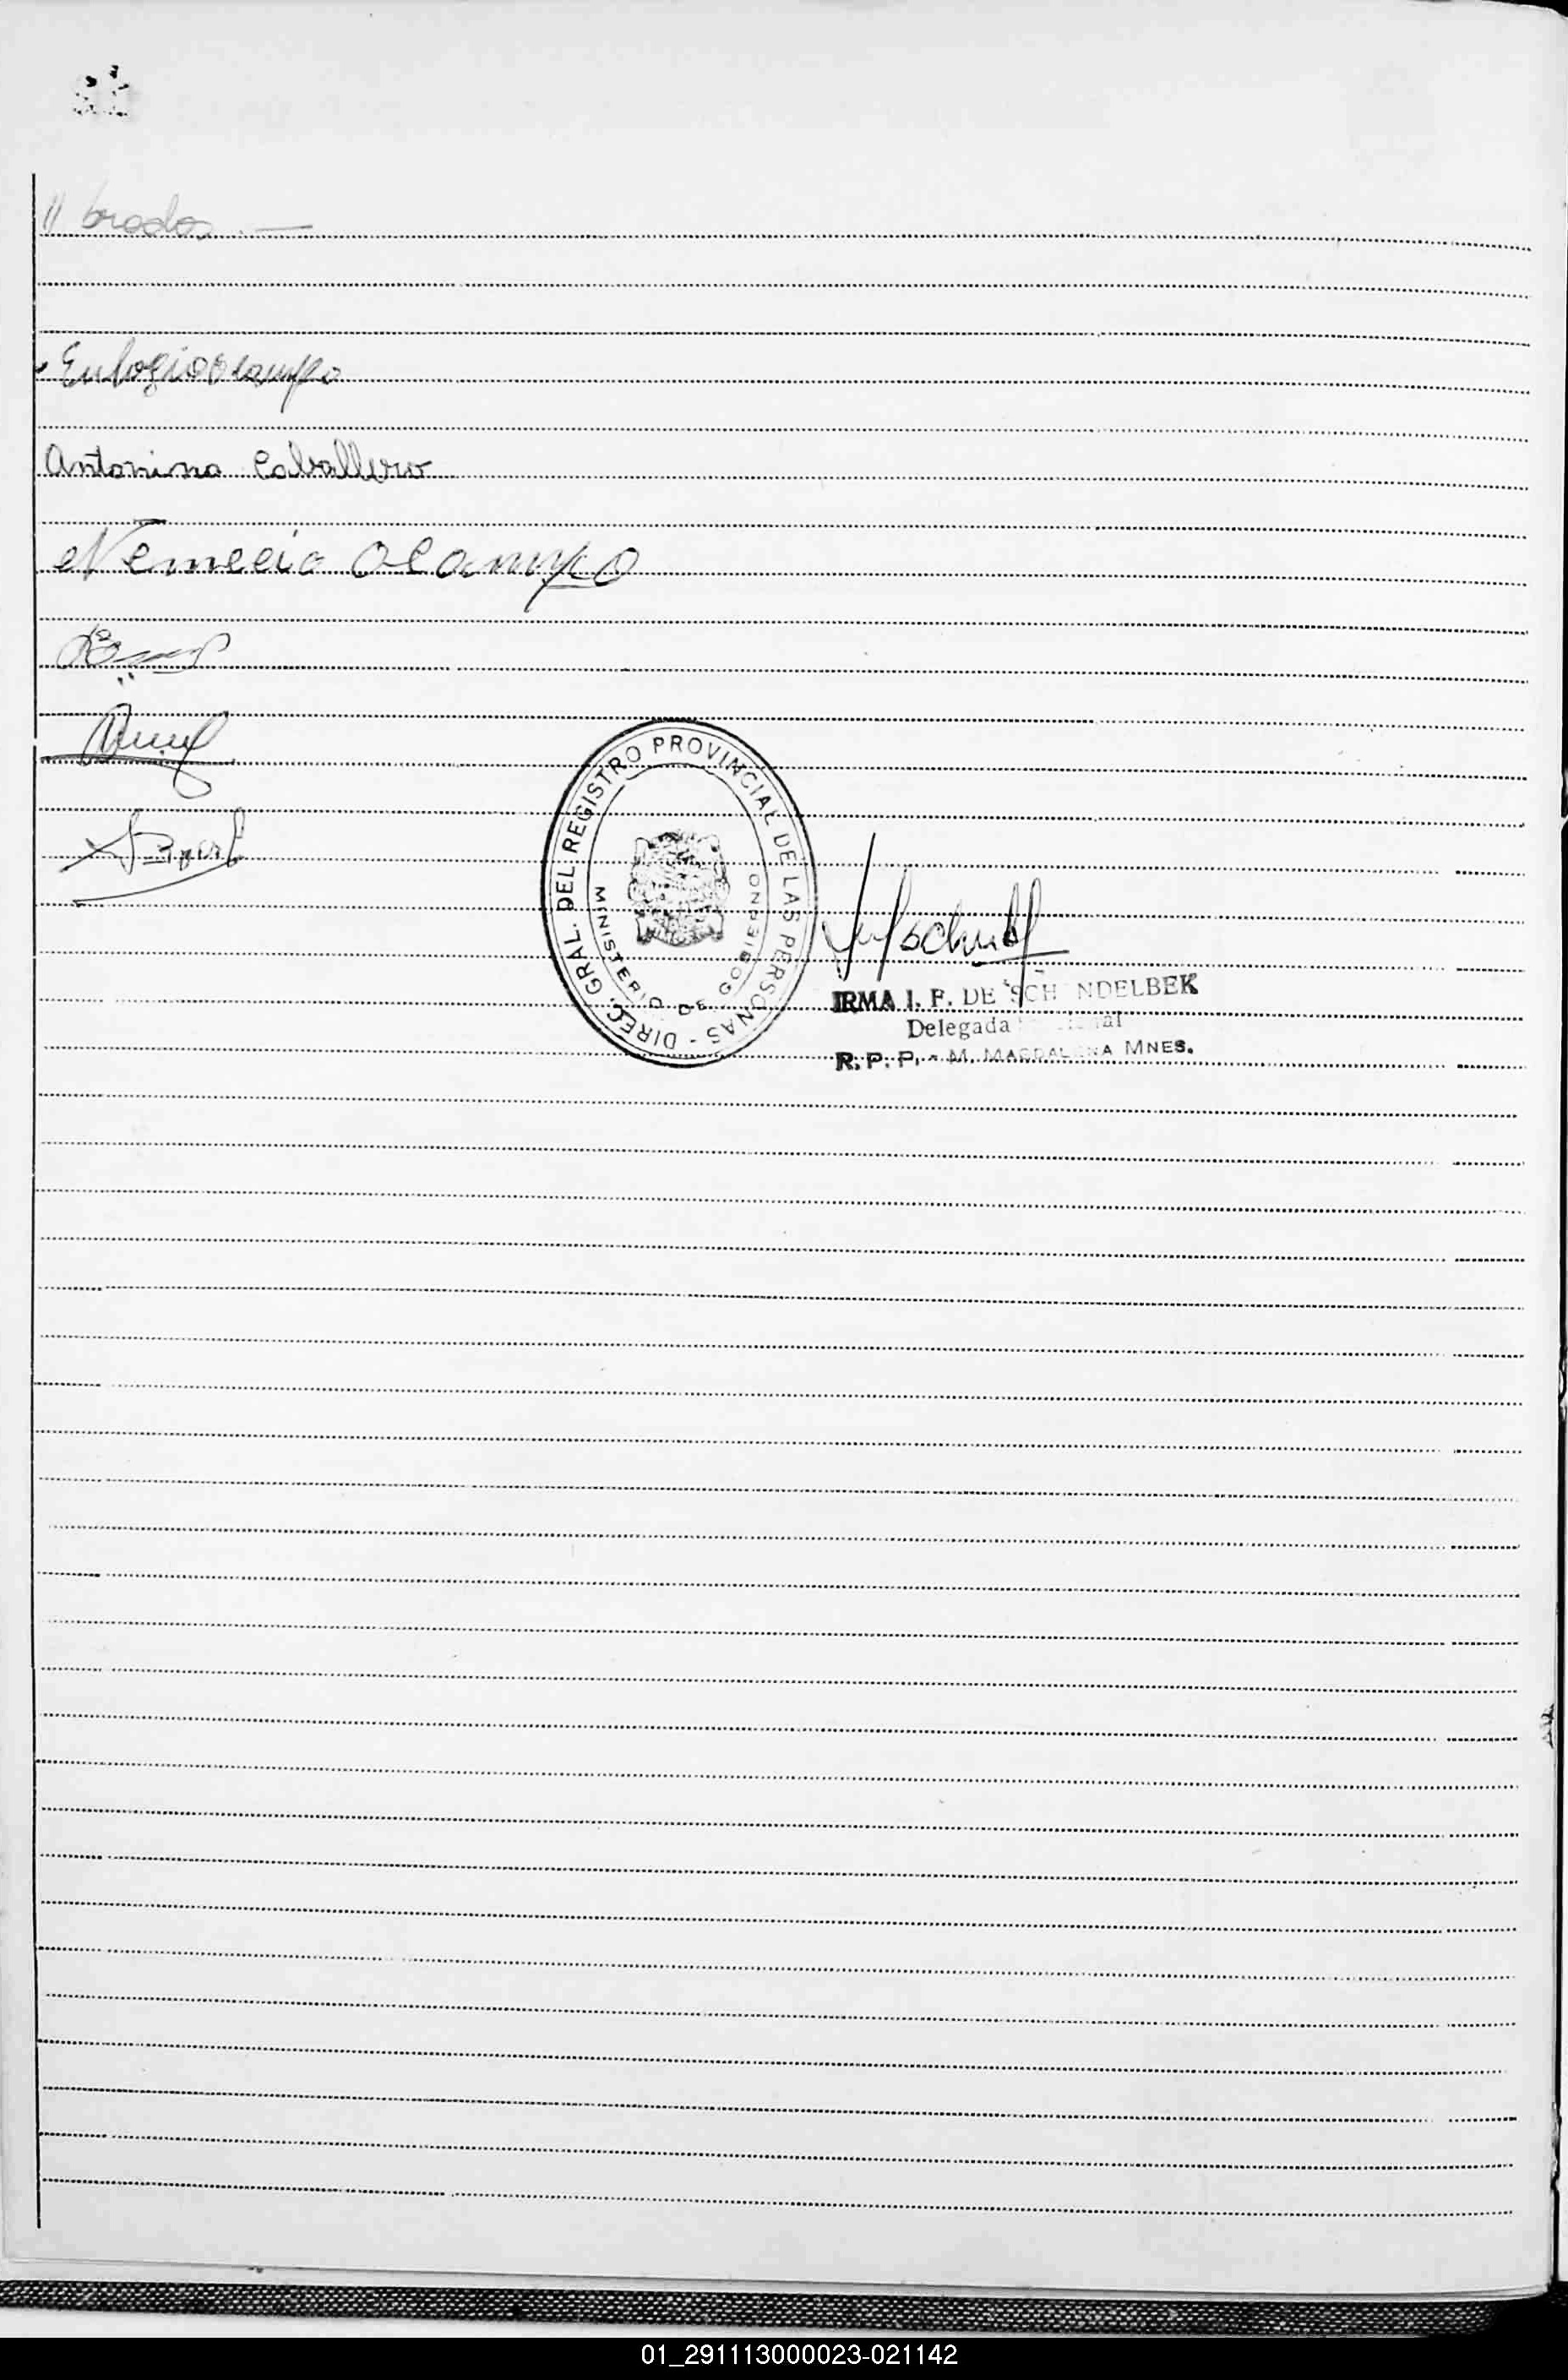 // brados.—
Eulogio Ocampo
Antonina Caballero
Nemecio Ocampo
DIREC. GRAL. DEL REGISTRO PROVINCIAL DE LAS PERSONAS -
MINISTERIO DE GOBIERNO
IRMA I. F. DE SCH NDELBEK
Delegada
R. P. P. - M. MAGDALENA MNES.
01_291113000023-021142